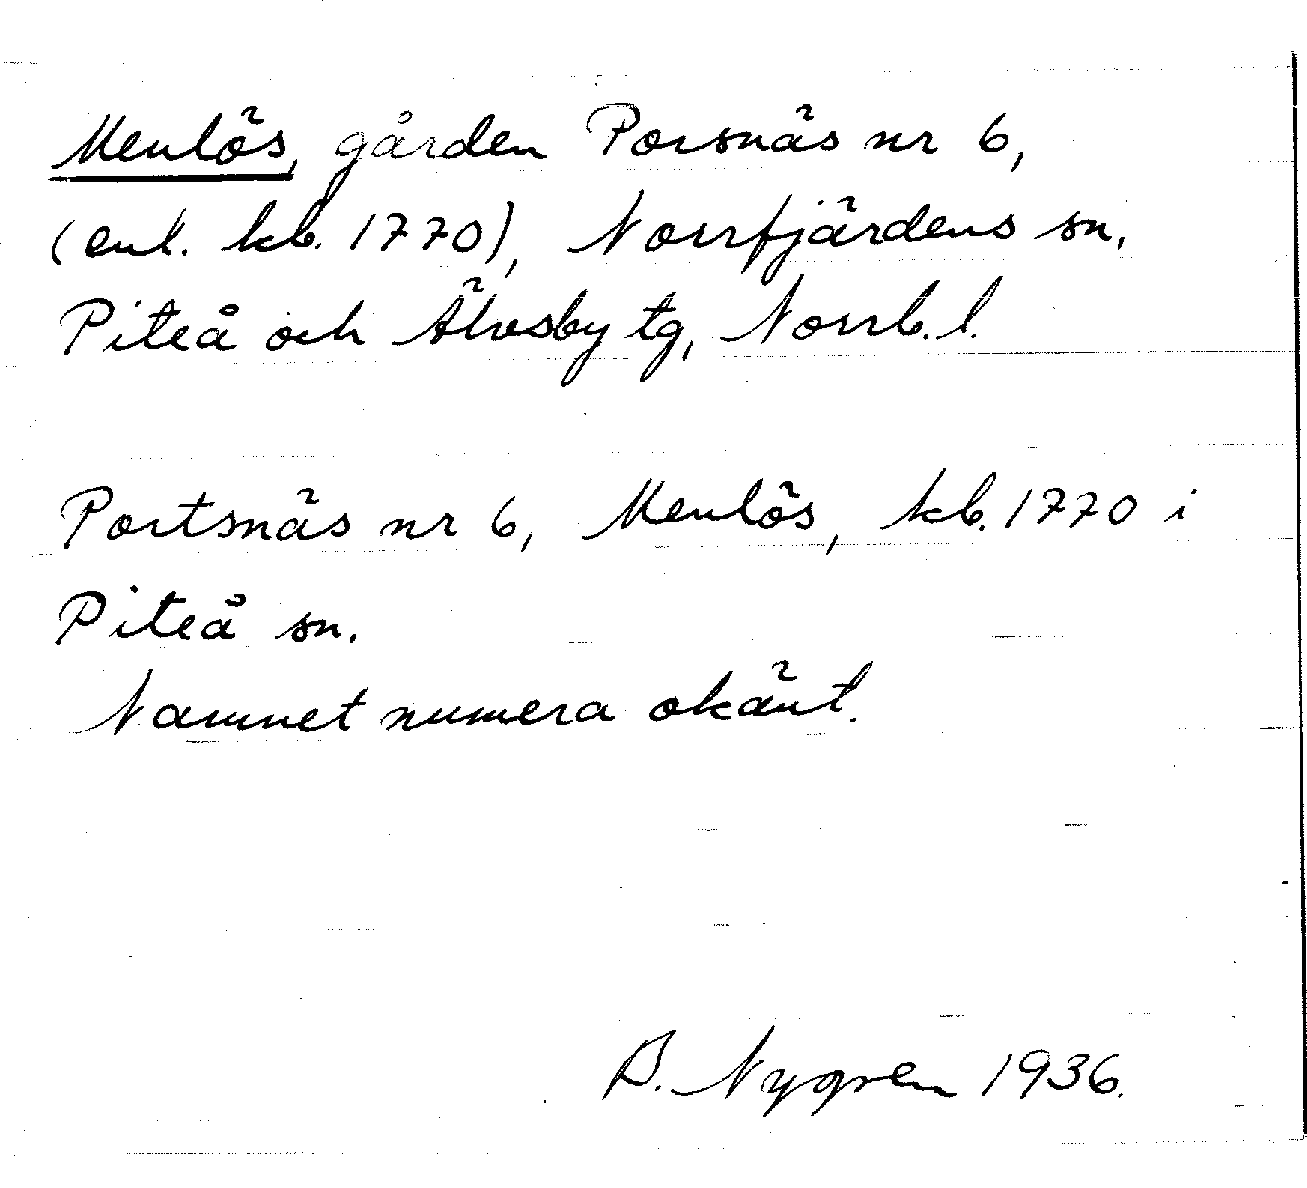 Menlös, gården Porsnäs nr 6,
(enl. kb. 1770), Norrfjärdens sn,
Piteå och Älvsby tg, Norrb. l.
Portsnäs nr 6, Menlös, kb. 1770 i
Piteå sn.
Namnet numera okänt.
B. Nygren 1936.